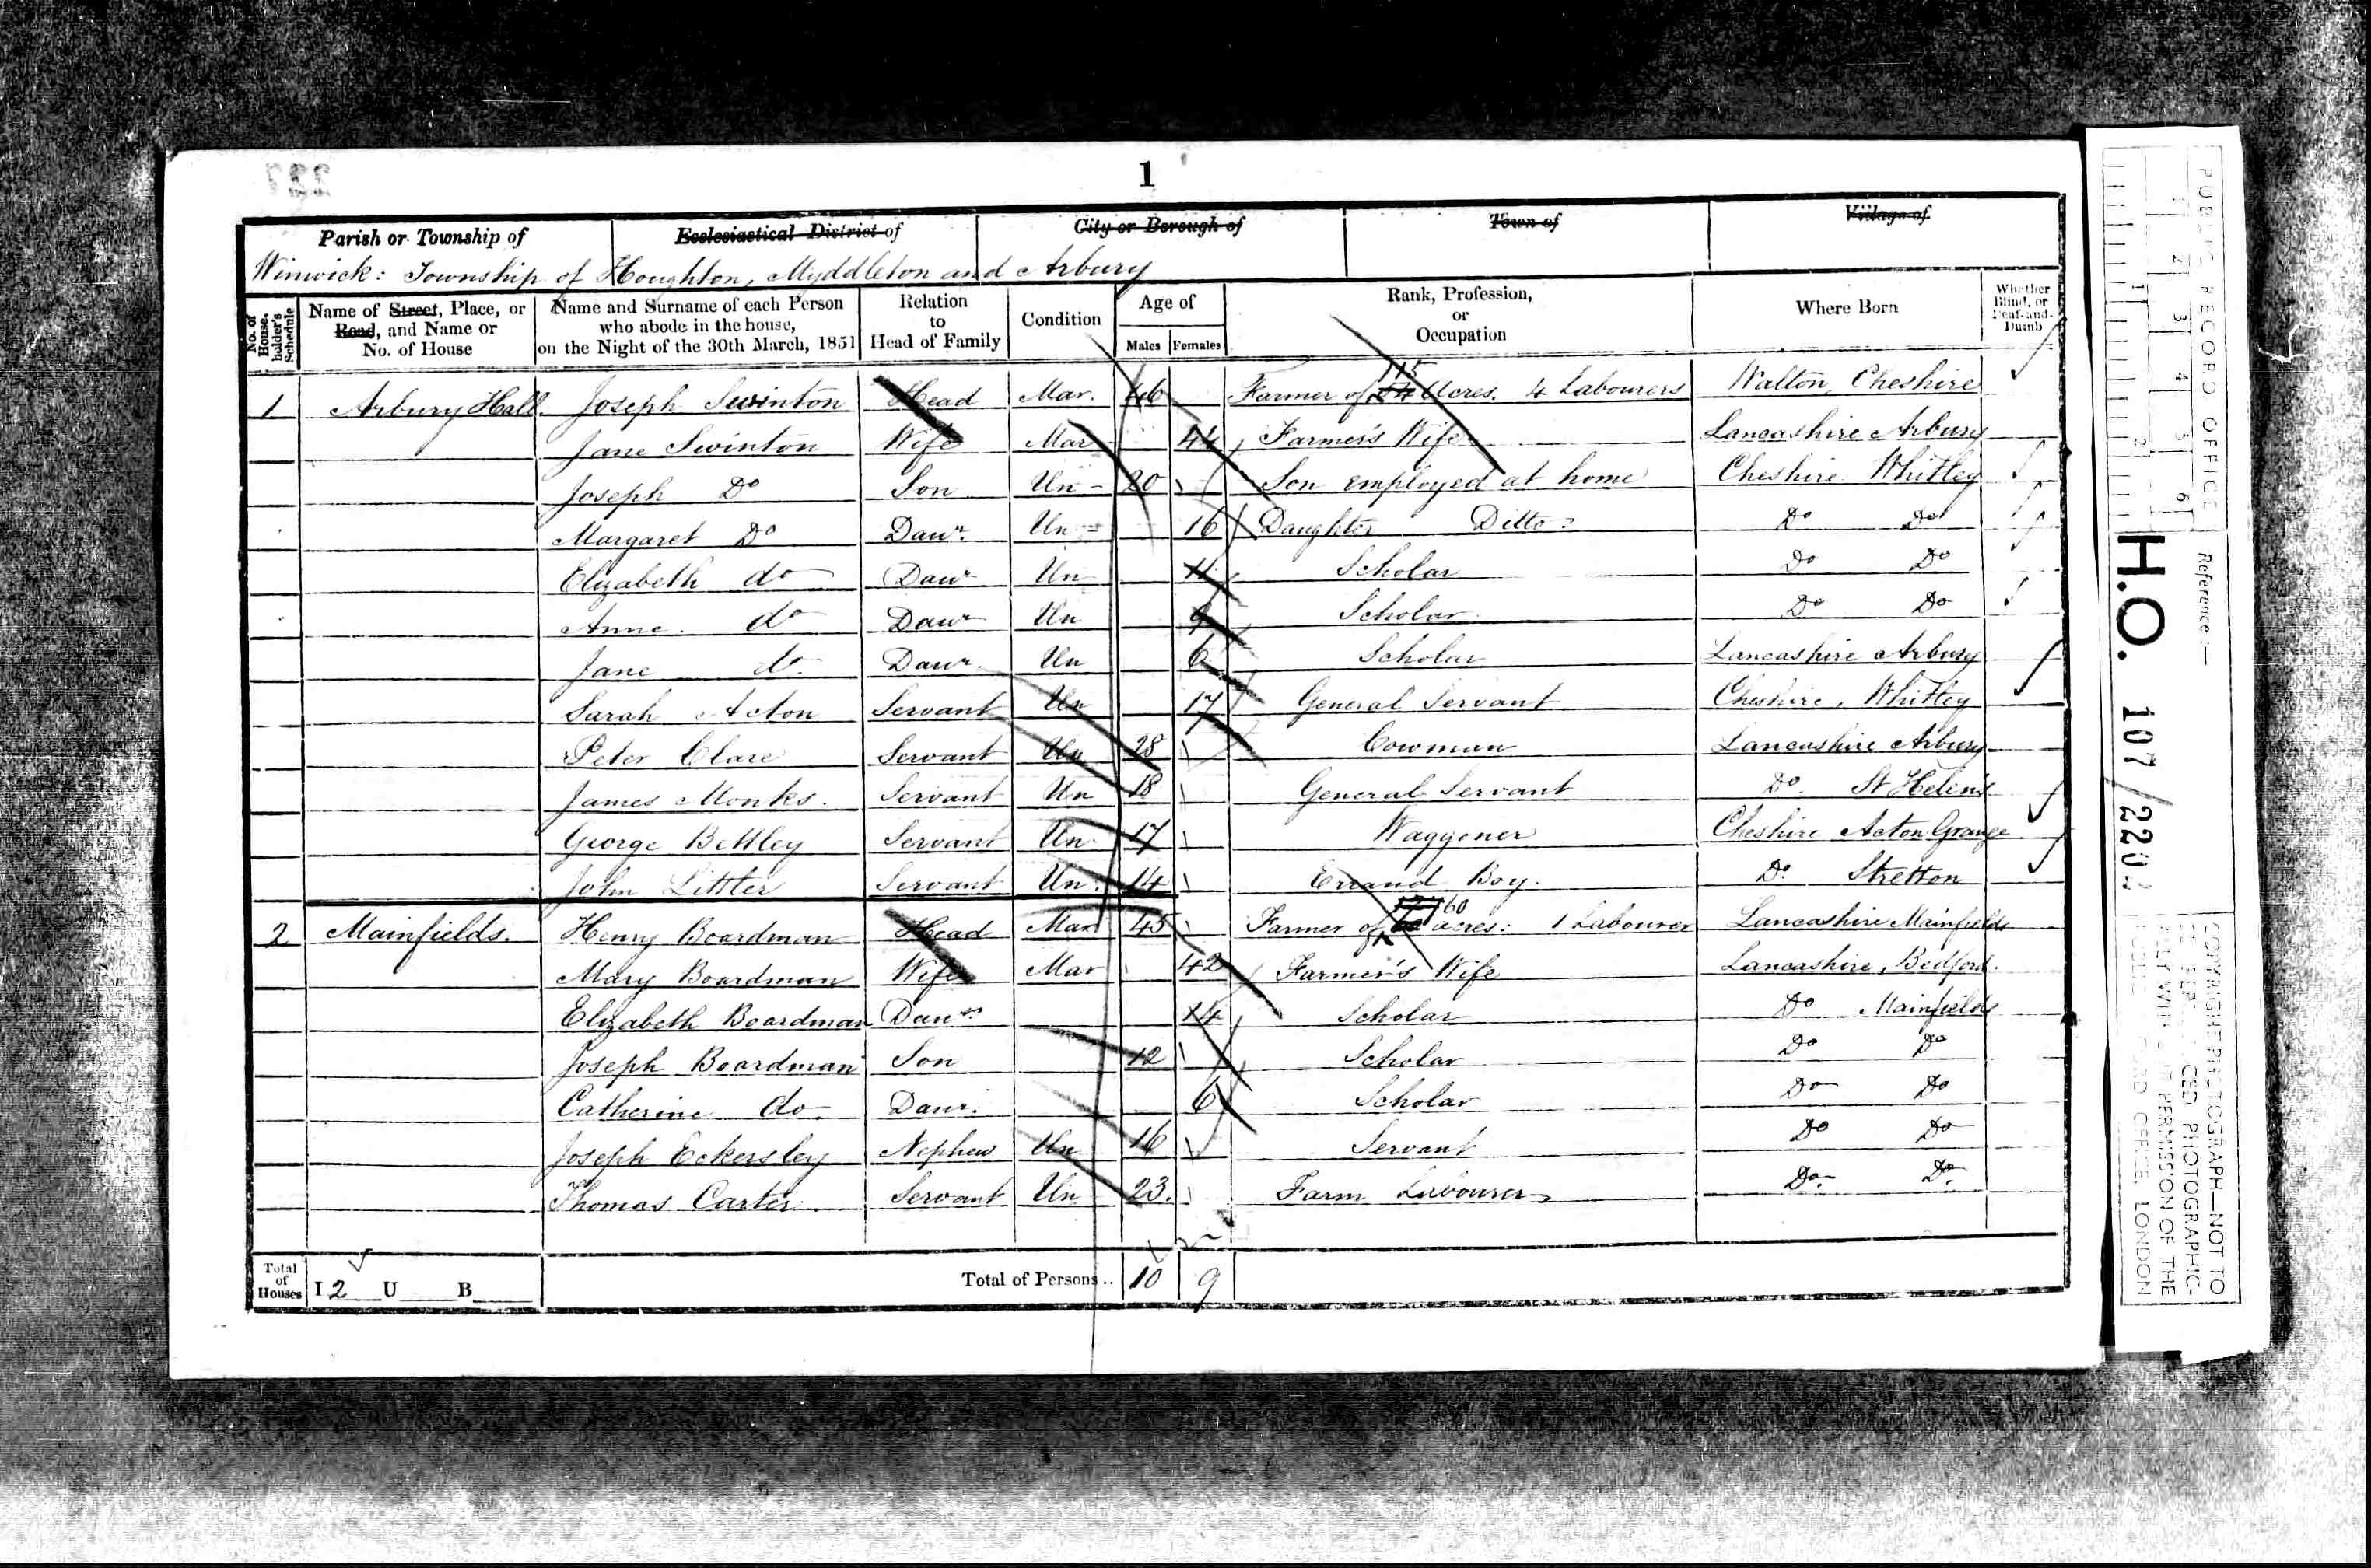 1
Parish or Township of Ecclesiastical District of City or Borough of Town of Village of
Winwick: Township of Houghton, Myddleton and Arbury
No. of House-holder's Schedule
Name of Street, Place, or Road, and Name or No. of House
Name and Surname of each Person who abode in the house, on the Night of the 30th March, 1851
Relation to Head of Family
Condition
Age of
Males Females
Rank, Profession, or Occupation
Where Born
Whether Blind, or Deaf-and-Dumb
1 Arbury Hall Joseph Swinton Head Mar. 46 Farmer of 115 Acres. 4 Labourers Walton, Cheshire
Jane Swinton Wife Mar 44 Farmer's Wife Lancashire Arbury
Joseph Do Son Un 20 Son employed at home Cheshire Whitley
Margaret Do Daur. Un 16 Daughter Ditto Do Do
Elizabeth do Daur Un 11 Scholar Do Do
Anne. do Daur Un 9 Scholar Do Do
Jane do. Daur. Un 6 Scholar Lancashire Arbury
Sarah Acton Servant Un 17 General Servant Cheshire, Whitley
Peter Clare Servant Un 28 Cowman Lancashire Arbury
James Monks. Servant Un 18 General Servant Do. St Helen's
George Bettley Servant Un 17 Waggoner Cheshire Acton Grange
John Littler Servant Un. 14 Errand Boy. Do. Stretton
2 Mainfields. Henry Boardman Head Mar 45 Farmer of 60 acres: 1 Labourer Lancashire Mainfields
Mary Boardman Wife Mar 42 Farmer's Wife Lancashire, Bedford.
Elizabeth Boardman Daur. 14 Scholar Do Mainfields
Joseph Boardman Son 12 Scholar Do Do
Catherine do Daur. 6 Scholar Do Do
Joseph Eckersley Nephew Un 16 Servant Do Do
Thomas Carter Servant Un 23. Farm Labourer Do. Do.
Total of Houses I 2 U B Total of Persons.. 10 9
PUBLIC RECORD OFFICE
1 2 3 4 5 6
Reference:—
H.O. 107/220
COPYRIGHT PHOTOGRAPH—NOT TO
PHOTOGRAPHIC-
PERMISSION OF THE
OFFICE, LONDON